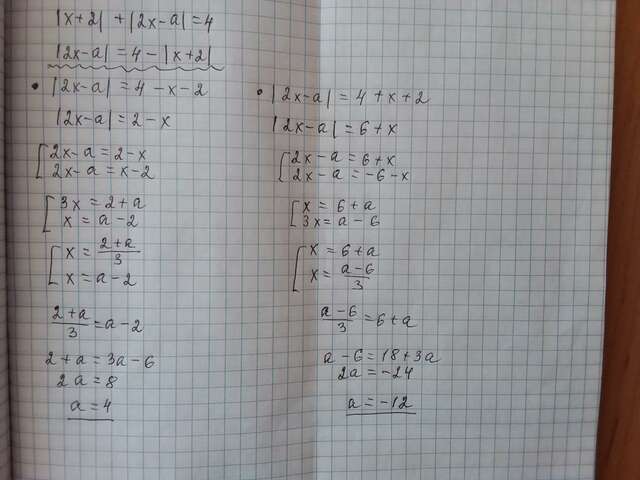 |x+2| + |2x-a| = 4
|2x-a| = 4 - |x+2|
• |2x-a| = 4 - x - 2
|2x-a| = 2 - x
[2x-a = 2-x
2x-a = x-2
[3x = 2+a
x = a-2
[x = (2+a)/3
x = a-2
(2+a)/3 = a-2
2+a = 3a-6
2a = 8
a = 4
• |2x-a| = 4+x+2
|2x-a| = 6+x
[2x-a = 6+x
2x-a = -6-x
[x = 6+a
3x = a-6
[x = 6+a
x = (a-6)/3
(a-6)/3 = 6+a
a-6 = 18+3a
2a = -24
a = -12